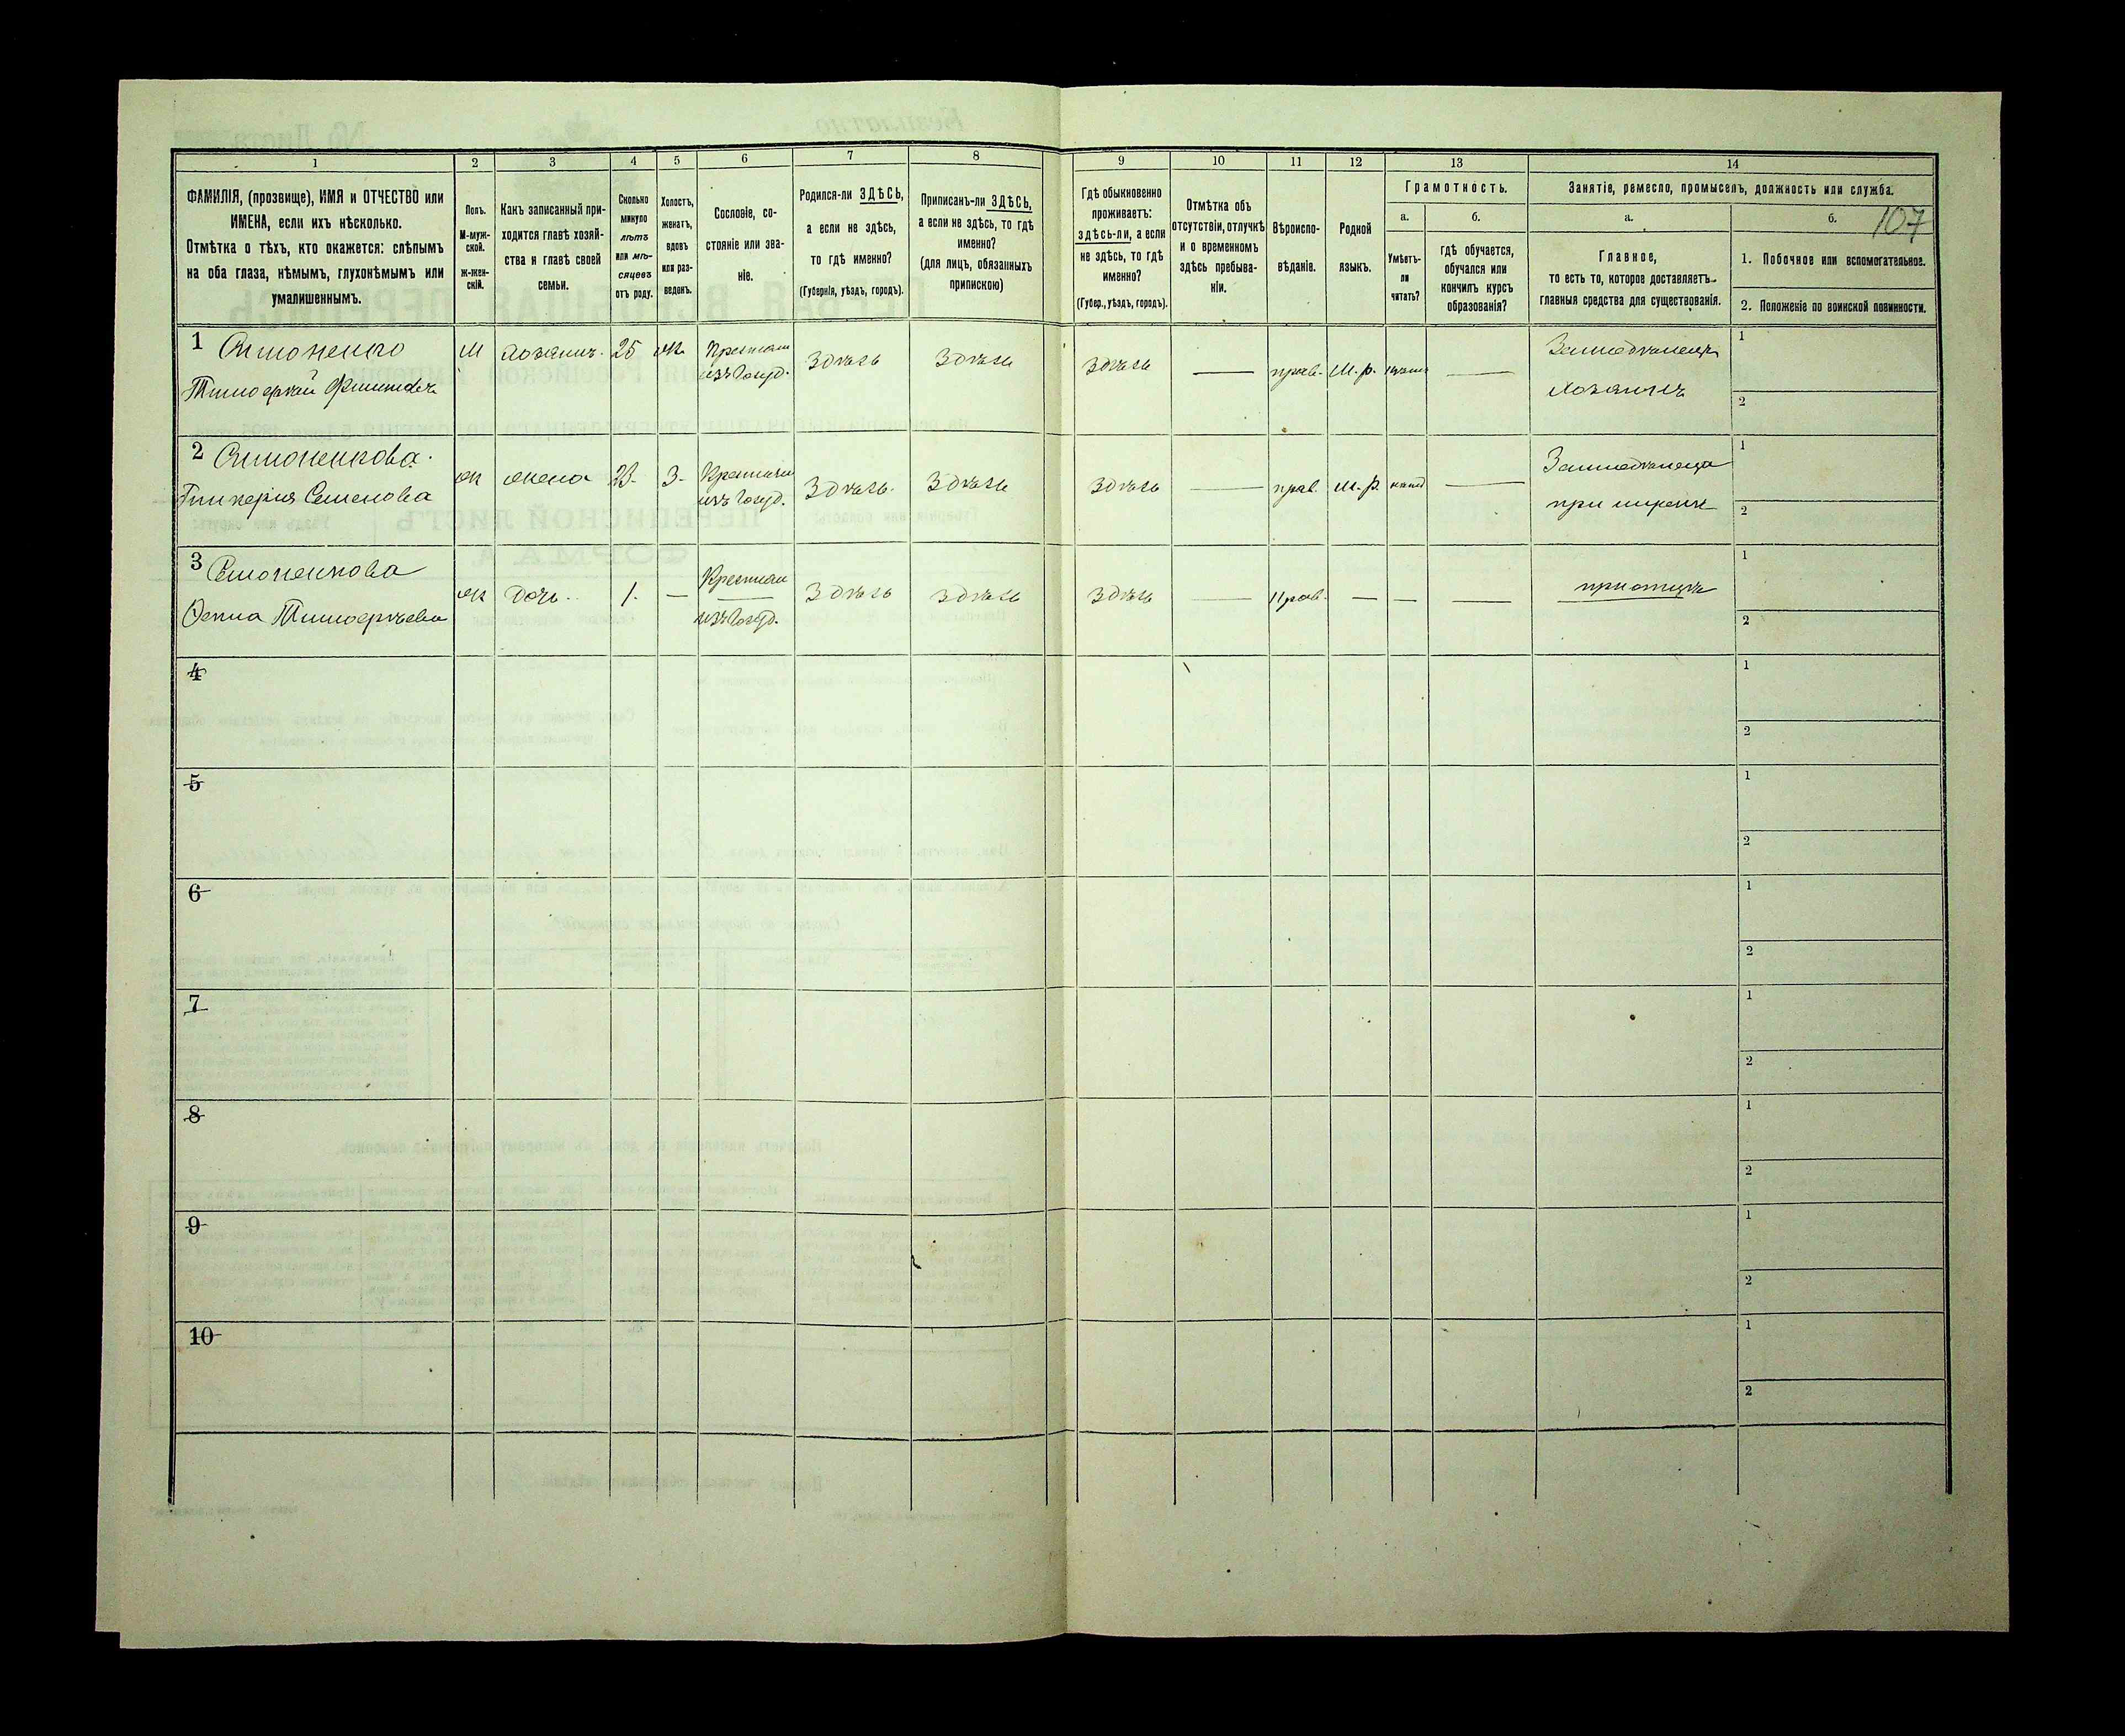 107
1 2 3 4 5 6 7 8 9 10 11 12 13 14
ФАМИЛІЯ, (прозвище), ИМЯ и ОТЧЕСТВО или
ИМЕНА, если ихъ нѣсколько.
Отмѣтка о тѣхъ, кто окажется: слѣпымъ
на оба глаза, нѣмымъ, глухонѣмымъ или
умалишеннымъ.
Полъ.
М-муж-
ской.
ж-жен-
скій.
Какъ записанный при-
ходится главѣ хозяй-
ства и главѣ своей
семьи.
Сколько
минуло
лѣтъ
или мѣ-
сяцевъ
отъ роду.
Холостъ,
женатъ,
вдовъ
или раз-
веденъ.
Сословіе, со-
стояніе или зва-
ніе.
Родился-ли ЗДѢСЬ,
а если не здѣсь,
то гдѣ именно?
(Губернія, уѣздъ, городъ).
Приписанъ-ли ЗДѢСЬ,
а если не здѣсь, то гдѣ
именно?
(для лицъ, обязанныхъ
припискою)
Гдѣ обыкновенно
проживаетъ:
здѣсь-ли, а если
не здѣсь, то гдѣ
именно?
(Губер., уѣздъ, городъ).
Отмѣтка объ
отсутствіи, отлучкѣ
и о временномъ
здѣсь пребыва-
ніи.
Вѣроиспо-
вѣданіе.
Родной
языкъ.
Грамотность.
а.
Умѣетъ-
ли
читать?
б.
гдѣ обучается,
обучался или
кончилъ курсъ
образованія?
Занятіе, ремесло, промыселъ, должность или служба.
а.
Главное,
то есть то, которое доставляетъ
главныя средства для существованія.
б.
1. Побочное или вспомогательное.
2. Положеніе по воинской повинности.
1 М Хозяинъ 25 ж. Крестьян Здѣсь Здѣсь Здѣсь — прав. М.р. — Земледѣлецъ 1
изъ Госуд. хозяинъ 2
2 ж жена 23 З- Крестьян Здѣсь Здѣсь Здѣсь — прав. М.р. — 1
Семенова изъ Госуд. при мужѣ 2
3 ж дочь 1. — Крестьян Здѣсь Здѣсь Здѣсь — Прав. — — — при отцѣ 1
изъ Госуд. 2
4 1
2
5 1
2
6 1
2
7 1
2
8 1
2
9 1
2
10 1
2